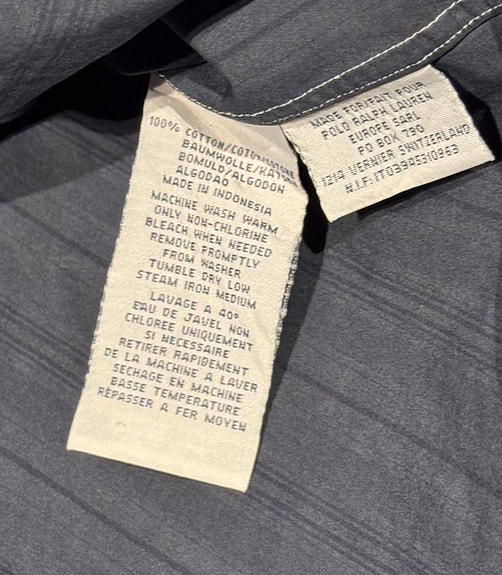 100% COTTON/COTONE/COTON
BAUMWOLLE/KATOEN
BOMULD/ALGODON
ALGODAO
MADE IN INDONESIA
MACHINE WASH WARM
ONLY NON-CHLORINE
BLEACH WHEN NEEDED
REMOVE PROMPTLY
FROM WASHER
TUMBLE DRY LOW
STEAM IRON MEDIUM
LAVAGE A 40°
EAU DE JAVEL NON
CHLOREE UNIQUEMENT
SI NECESSAIRE
RETIRER RAPIDEMENT
DE LA MACHINE A LAVER
SECHAGE EN MACHINE
BASSE TEMPERATURE
RÉPASSER A FER MOYEN
MADE FOR/FAIT POUR
POLO RALPH LAUREN
EUROPE SARL
PO BOX 790
1214 VERNIER SWITZERLAND
N.I.F: IT03345310963